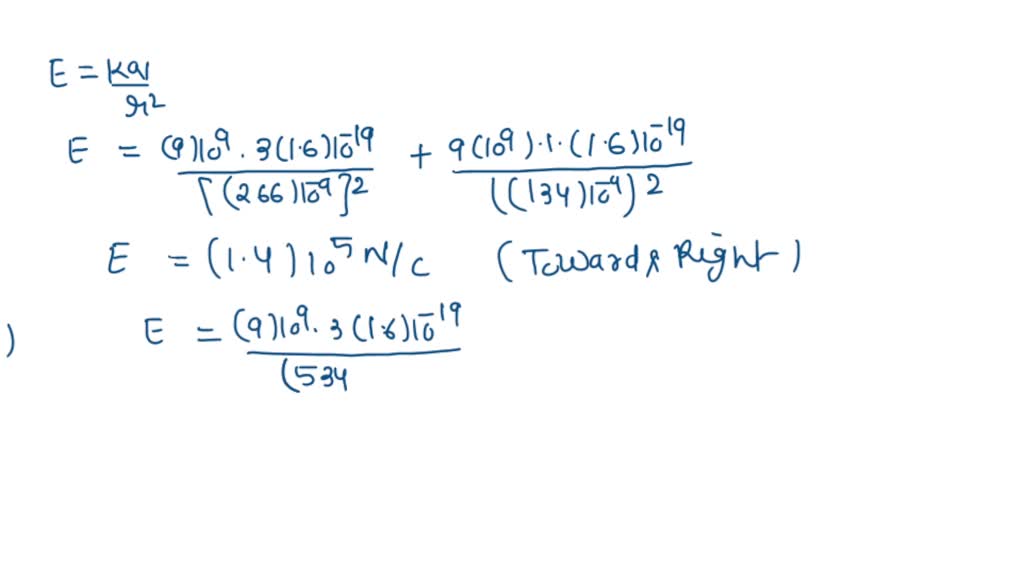 E = kq/r²
E = (9)10⁹ · 3(1.6)10⁻¹⁹ / [(266)10⁻⁹]² + 9(10⁹) · 1 · (1.6)10⁻¹⁹ / ((134)10⁻⁹)²
E = (1.4)10⁵ N/C (Towards Right)
) E = (9)10⁹ · 3(1.6)10⁻¹⁹ / (534